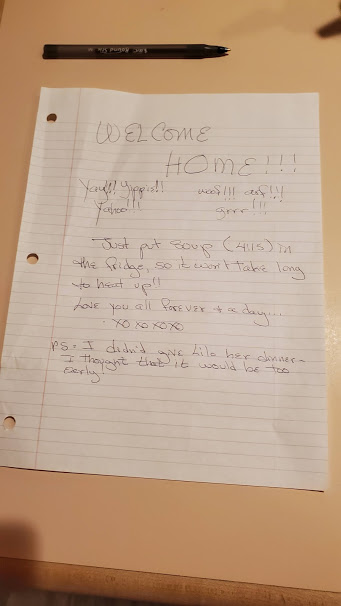 WELCOME
HOME!!!
Yay!!! Yippis!! woof!!! arf!!!
Yahoo!!! grrr!!!
Just put soup (4:15) in
the fridge, so it won't take long
to heat up!!
Love you all forever + a day...
XO XO XO XO
PS - I didn'd give Lila her dinner -
I thought that it would be too
early.